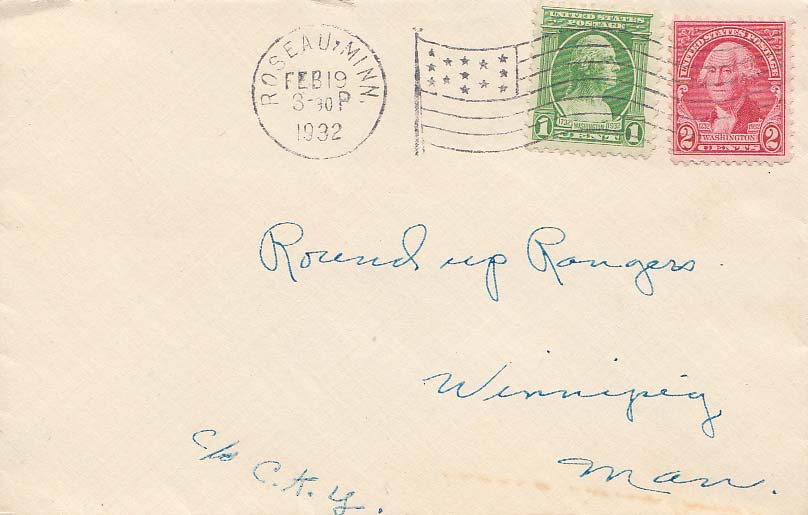 ROSEAU, MINN.
FEB 19
3-30 P
1932
UNITED STATES
POSTAGE
1732 WASHINGTON 1932
1 CENT 1
UNITED STATES POSTAGE
WASHINGTON
2 CENTS 2
Round up Rangers
Winnipeg
Man.
c/o C.K.Y.